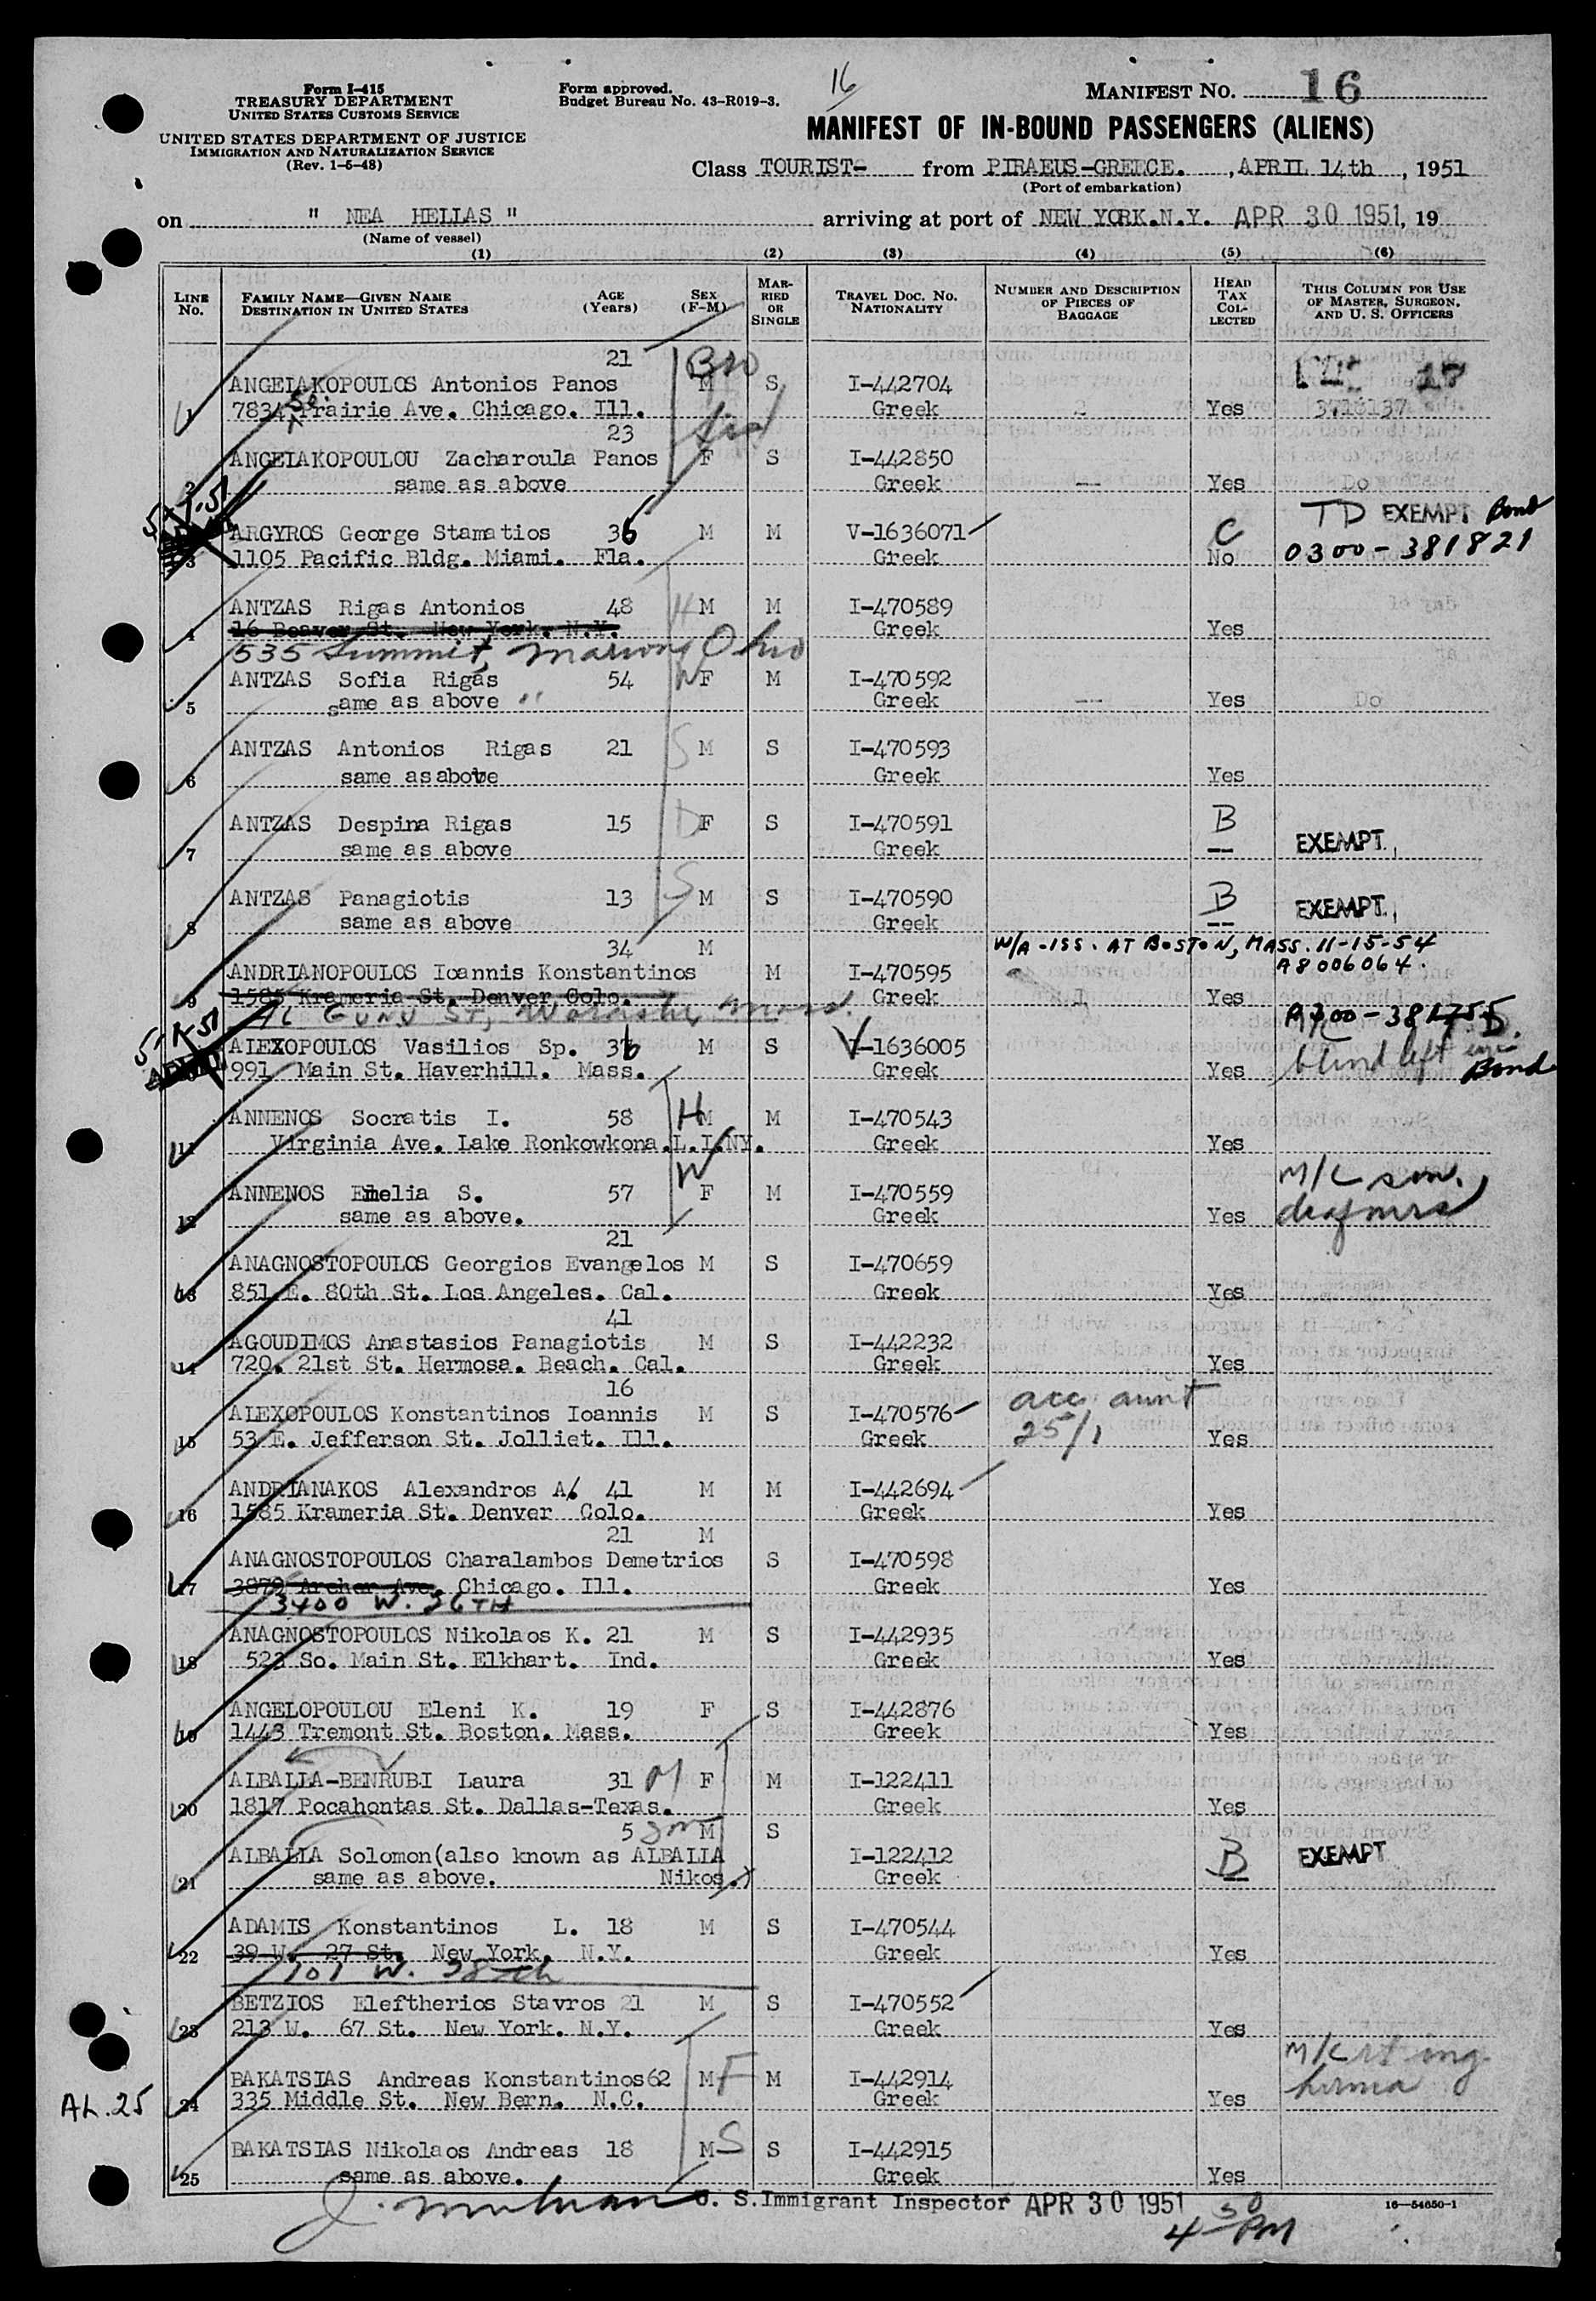 Form I-415
TREASURY DEPARTMENT
UNITED STATES CUSTOMS SERVICE
UNITED STATES DEPARTMENT OF JUSTICE
IMMIGRATION AND NATURALIZATION SERVICE
(Rev. 1-5-48)
Form approved.
Budget Bureau No. 43-R019-3.
16
MANIFEST NO. 16
MANIFEST OF IN-BOUND PASSENGERS (ALIENS)
Class TOURIST- from PIRAEUS-GREECE. , APRIL 14th , 1951
(Port of embarkation)
on " NEA HELLAS " arriving at port of NEW YORK.N.Y. APR 30 1951, 19
(Name of vessel)
(1) (2) (3) (4) (5) (6)
LINE No. FAMILY NAME—GIVEN NAME DESTINATION IN UNITED STATES AGE (Years) SEX (F-M) MARRIED OR SINGLE TRAVEL DOC. NO. NATIONALITY NUMBER AND DESCRIPTION OF PIECES OF BAGGAGE HEAD TAX COLLECTED THIS COLUMN FOR USE OF MASTER, SURGEON, AND U. S. OFFICERS
21 Bro
ANGEIAKOPOULOS Antonios Panos M S I-442704
1 7834 So. Prairie Ave. Chicago. Ill. Greek 2 Yes 3718137
23 sis
ANGEIAKOPOULOU Zacharoula Panos F S I-442850
2 same as above Greek — Yes Do
5-1-51 TD EXEMPT Bond
ARGYROS George Stamatios 36 M M V-1636071 C
3 1105 Pacific Bldg. Miami. Fla. Greek No 0300-381821
ANTZAS Rigas Antonios 48 H M M I-470589
4 16 Beaver St. New York. N.Y. Greek Yes
535 Summit, Marion, Ohio
ANTZAS Sofia Rigas 54 W F M I-470592
5 same as above " Greek — Yes Do
ANTZAS Antonios Rigas 21 S M S I-470593
6 same as above Greek Yes
ANTZAS Despina Rigas 15 D F S I-470591 B
7 same as above Greek — EXEMPT
ANTZAS Panagiotis 13 S M S I-470590 B
8 same as above Greek — EXEMPT
34 M W/A-ISS. AT BOSTON, MASS. 11-15-54
ANDRIANOPOULOS Ioannis Konstantinos M I-470595 A8006064.
9 1585 Krameria St. Denver. Colo. Greek 1 Yes
St, Worcester, Mass.
5-1-51 A300-381755
ALEXOPOULOS Vasilios Sp. 36 M S V-1636005
991 Main St. Haverhill. Mass. Greek Yes blind left eye Bond
ANNENOS Socratis I. 58 H M M I-470543
11 Virginia Ave. Lake Ronkowkona.L.I.NY. Greek Yes
W M/C sen.
ANNENOS Emelia S. 57 F M I-470559
12 same as above. Greek Yes deafness
21
ANAGNOSTOPOULOS Georgios Evangelos M S I-470659
13 851 E. 80th St. Los Angeles. Cal. Greek Yes
41
AGOUDIMOS Anastasios Panagiotis M S I-442232
14 720. 21st St. Hermosa. Beach. Cal. Greek Yes
16 acc aunt
ALEXOPOULOS Konstantinos Ioannis M S I-470576
15 53 E. Jefferson St. Jolliet. Ill. Greek 25/1 Yes
ANDRIANAKOS Alexandros A. 41 M M I-442694
16 1585 Krameria St. Denver Colo. Greek Yes
21 M
ANAGNOSTOPOULOS Charalambos Demetrios S I-470598
17 3879 Archer Ave. Chicago. Ill. Greek Yes
3400 W. 26TH
ANAGNOSTOPOULOS Nikolaos K. 21 M S I-442935
18 523 So. Main St. Elkhart. Ind. Greek Yes
ANGELOPOULOU Eleni K. 19 F S I-442876
19 1443 Tremont St. Boston. Mass. Greek Yes
ALBALLA-BENRUBI Laura 31 M F M I-122411
20 1817 Pocahontas St. Dallas-Texas. Greek Yes
5 son M S
ALBALLA Solomon(also known as ALBALLA I-122412 B EXEMPT
21 same as above. Nikos.) Greek —
ADAMIS Konstantinos L. 18 M S I-470544
22 39 W. 27 St. New York. N.Y. Greek Yes
101 W. 28th
BETZIOS Eleftherios Stavros 21 M S I-470552
23 213 W. 67 St. New York. N.Y. Greek Yes
M/C rt ing.
BAKATSIAS Andreas Konstantinos62 M F M I-442914 hernia
AL.25 24 335 Middle St. New Bern. N.C. Greek Yes
BAKATSIAS Nikolaos Andreas 18 M S S I-442915
25 same as above. Greek Yes
U. S.Immigrant Inspector APR 30 1951 16-54650-1
4 30 PM